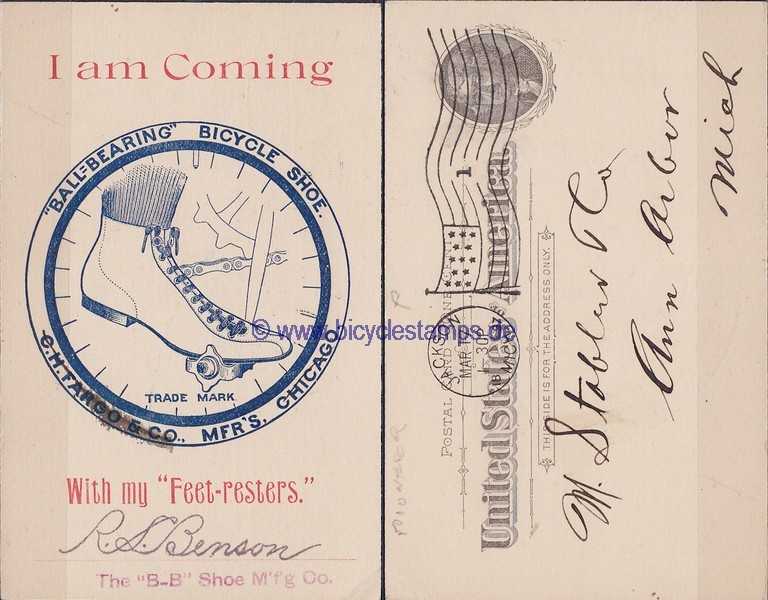 I am Coming
"BALL-BEARING" BICYCLE SHOE.
C.H. FARGO & CO., MFR'S, CHICAGO.
TRADE MARK
With my "Feet-resters."
R.S. Benson
The "B-B" Shoe M'f'g Co.
© www.bicyclestamps.de
POSTAL CARD
United States America.
THIS SIDE IS FOR THE ADDRESS ONLY.
JACKSON
MAR
30P
MICH
1
M. Stabler & Co
Ann Arbor
Mich
PIONEER P